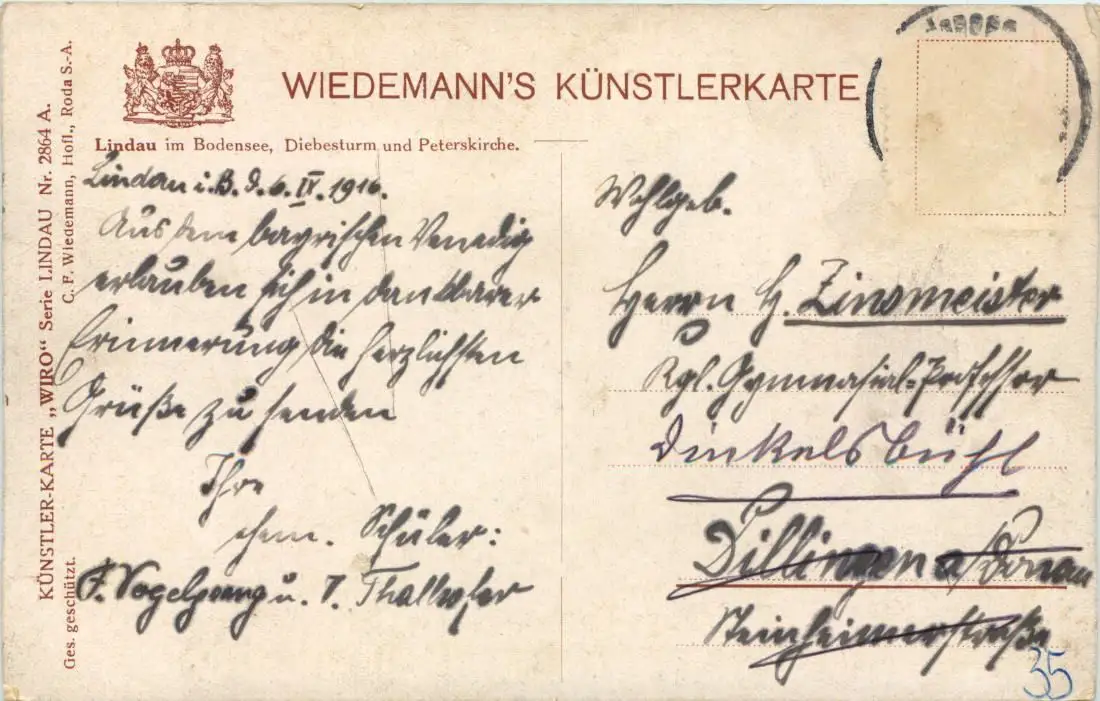 WIEDEMANN'S KÜNSTLERKARTE
Lindau im Bodensee, Diebesturm und Peterskirche.
Lindau i. B. d. 6. IV. 1916.
Aus dem bayrischen Venedig
erlauben sich in dankbarer
Erinnerung die herzlichsten
Grüße zu senden
Ihre
ehem. Schüler:
F. Vogelgsang u.
Wohlgeb.
Herrn H. Zinsmeister
Kgl. Gymnasial-Professor
Dinkelsbühl
Dillingen a/Donau
Steinheimerstraße
35
KÜNSTLER-KARTE „WIRO“ Serie LINDAU Nr. 2864 A.
Ges. geschützt. C. F. Wiedemann, Hofl., Roda S.-A.